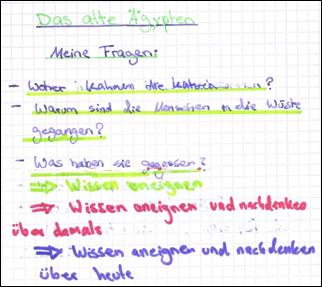 Das alte Ägypten
Meine Fragen:
- Woher kahmen die
- Warum sind die Menschen in die Wüste
gegangen?
- Was haben sie gegessen?
⇒ Wissen aneignen
⇒ Wissen aneignen und nachdenken
über damals
⇒ Wissen aneignen und nachdenken
über heute